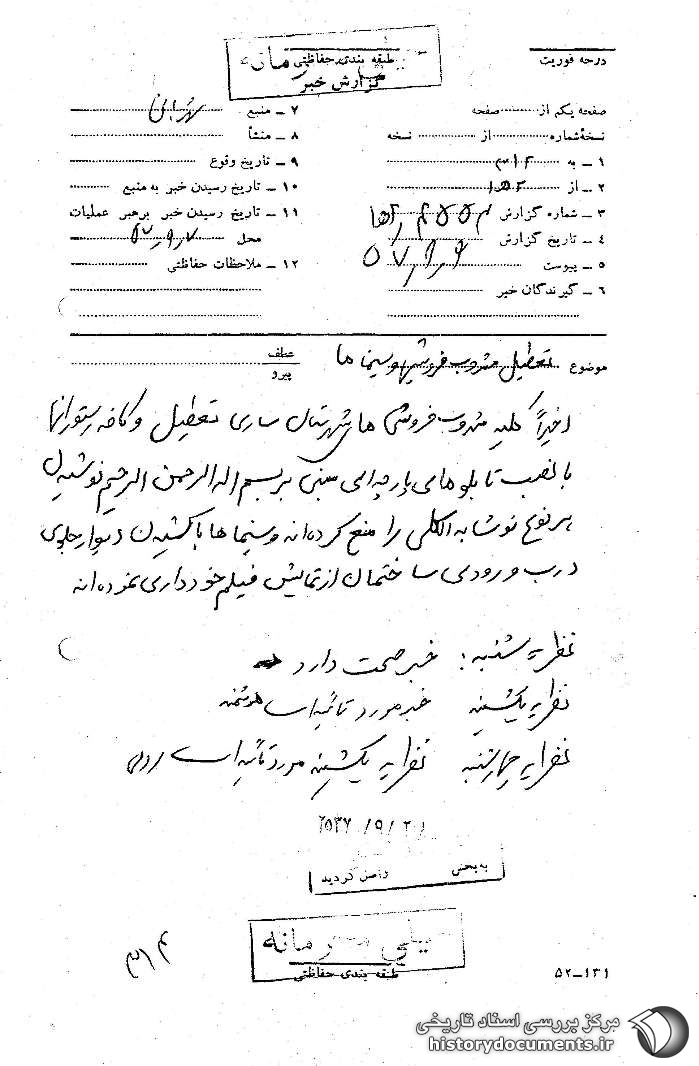 طبقه بندی حفاظتی
گزارش خبر
درجه فوریت
صفحه یکم از صفحه
نسخهٔ شماره از نسخه
۱ ـ به ۳۱۲
۲ ـ از
۳ ـ شماره گزارش
۴ ـ تاریخ گزارش
۵ ـ پیوست
۶ ـ گیرندگان خبر
۷ ـ منبع
۸ ـ منشأ
۹ ـ تاریخ وقوع
۱۰ ـ تاریخ رسیدن خبر به منبع
۱۱ ـ تاریخ رسیدن خبر برهبر عملیات
محل
۱۲ ـ ملاحظات حفاظتی
موضوع تعطیل مشروب فروشیها و سینما ها
عطف
پیرو
اخیراً کلیه مشروب فروشی های شهرستان ساری تعطیل و کافه رستورانها
با نصب تابلو های پارچه‌ای مبنی بر بسم اله الرحمن الرحیم نوشیدن
هر نوع نوشابه الکلی را منع کرده‌اند و سینما ها با کشیدن دیوار جلوی
درب ورودی ساختمان از نمایش فیلم خودداری نموده اند
نظریه شنبه : خبر صحت دارد
نظریه یکشنبه خبر مورد تائید است
نظریه چهارشنبه نظریه یکشنبه مورد تائید است
۲۵۳۷ /۹/ ۲۱
به بخش واصل گردید
خیلی محرمانه
طبقه بندی حفاظتی
۳۱۴
۵۲ـ۱۳۱
مرکز بررسی اسناد تاریخی
historydocuments.ir